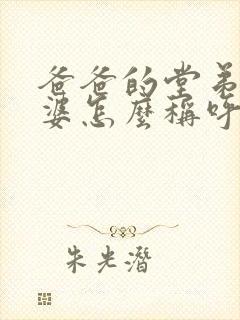 爸爸的堂弟
婆怎麼稱呼
朱光潛